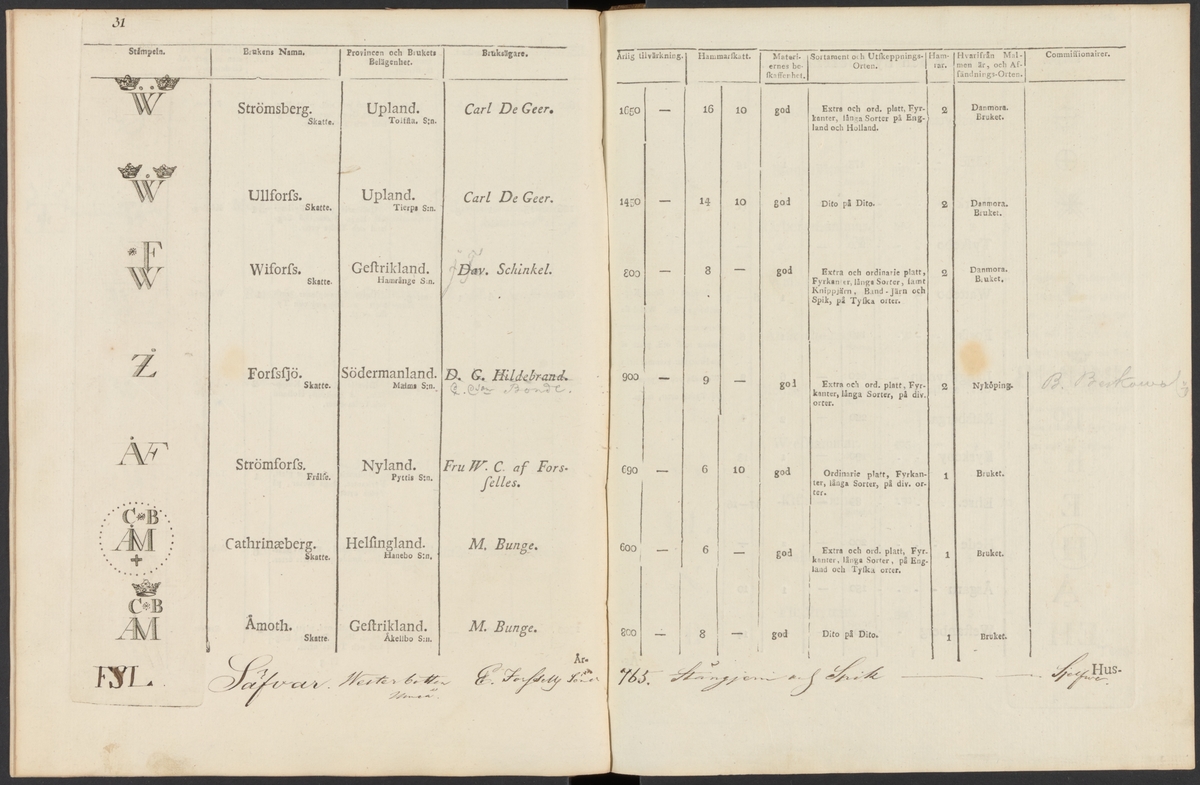 31
Stämpeln. Brukens Namn. Provincen och Brukets Belägenhet. Bruksägare. Årlig tilvärkning. Hammarskatt. Materiernes beskaffenhet. Sortament och Utskeppnings-Orten. Hamrar. Hvarifrån Malmen är, och Afsändnings-Orten. Commissionairer.
W
Strömsberg. Upland. Carl De Geer. 1650 — 16 10 god Extra och ord. platt, Fyr- 2 Danmora.
Skatte. Tolfta. S:n. kanter, långa Sorter på Eng- Bruket.
land och Holland.
W
Ullforss. Upland. Carl De Geer. 1450 — 14 10 god Dito på Dito. 2 Danmora.
Skatte. Tierps S:n. Bruket.
F
W
Wiforss. Gestrikland. Dav. Schinkel. 800 — 8 — god Extra och ordinarie platt, 2 Danmora.
Skatte. Hamrånge S:n. Fyrkanter, långa Sorter, samt Bruket.
Knippjärn, Band-Järn och
Spik, på Tyska orter.
Z
Forssjö. Södermanland. D. G. Hildebrand. 900 — 9 — god Extra och ord. platt, Fyr- 2 Nyköping.
Skatte. Bondt.
kanter, långa Sorter, på div.
orter.
ÅF
Strömforss. Nyland. Fru W. C. af Fors- 690 — 6 10 god Ordinarie platt, Fyrkan- 1 Bruket.
Frälse. Pyttis S:n. selles. ter, långa Sorter, på div. or-
ter.
C B
ÅM
Cathrinæberg. Helsingland. M. Bunge. 600 — 6 — god Extra och ord. platt, Fyr- 1 Bruket.
Skatte. Hanebo S:n. kanter, långa Sorter, på Eng-
land och Tyska orter.
C B
ÅM
Åmoth. Gestrikland. M. Bunge. 800 — 8 — god Dito på Dito. 1 Bruket.
Skatte. Åkelibo S:n.
År- Hus-
Säfvar. Westerbotten E. Forsell 765. Stångjern och Spik — —
Umeå.